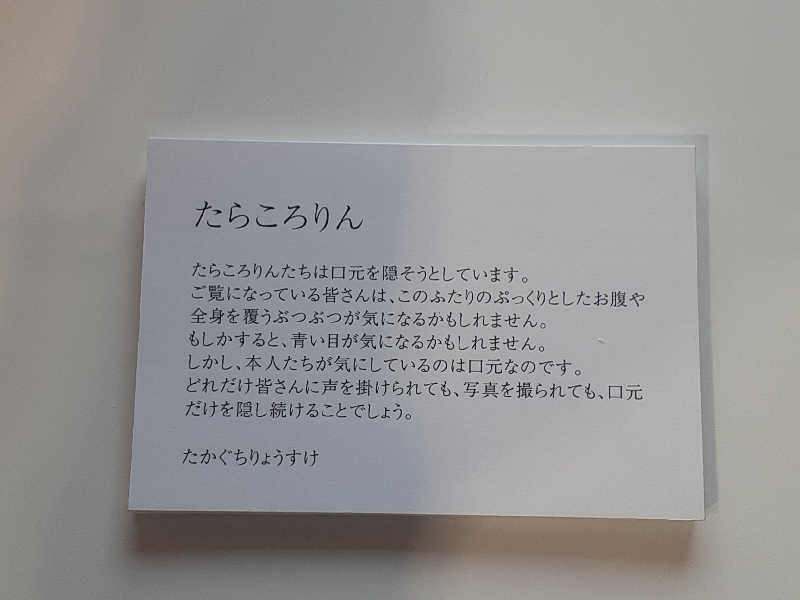 たらころりん
たらころりんたちは口元を隠そうとしています。
ご覧になっている皆さんは、このふたりのぷっくりとしたお腹や
全身を覆うぶつぶつが気になるかもしれません。
もしかすると、青い目が気になるかもしれません。
しかし、本人たちが気にしているのは口元なのです。
どれだけ皆さんに声を掛けられても、写真を撮られても、口元
だけを隠し続けることでしょう。
たかぐちりょうすけ